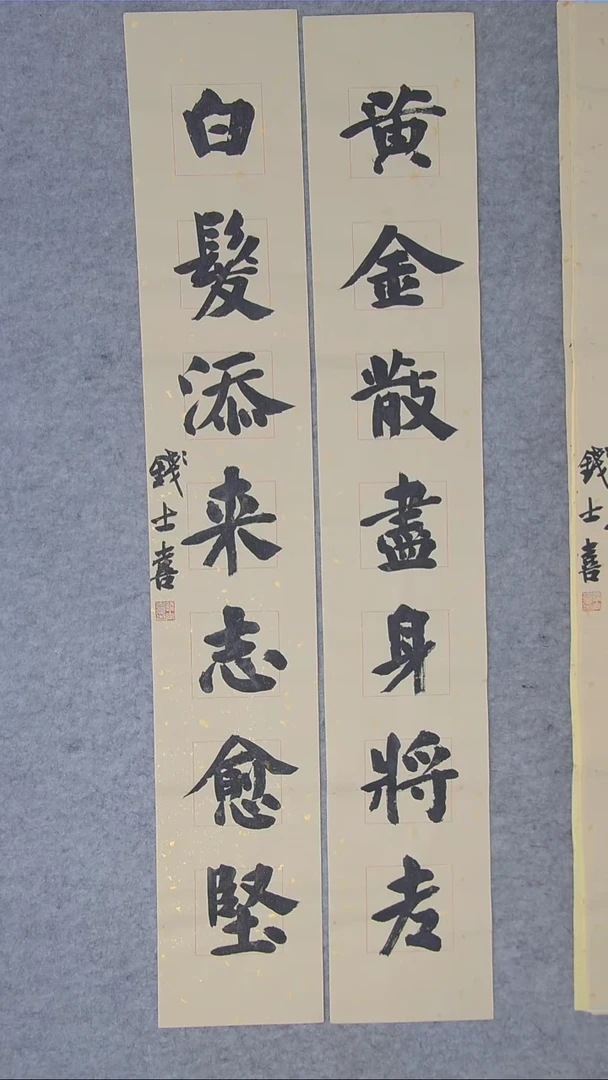 黄金散盡身將老
白髮添来志愈堅
錢士喜
錢士喜